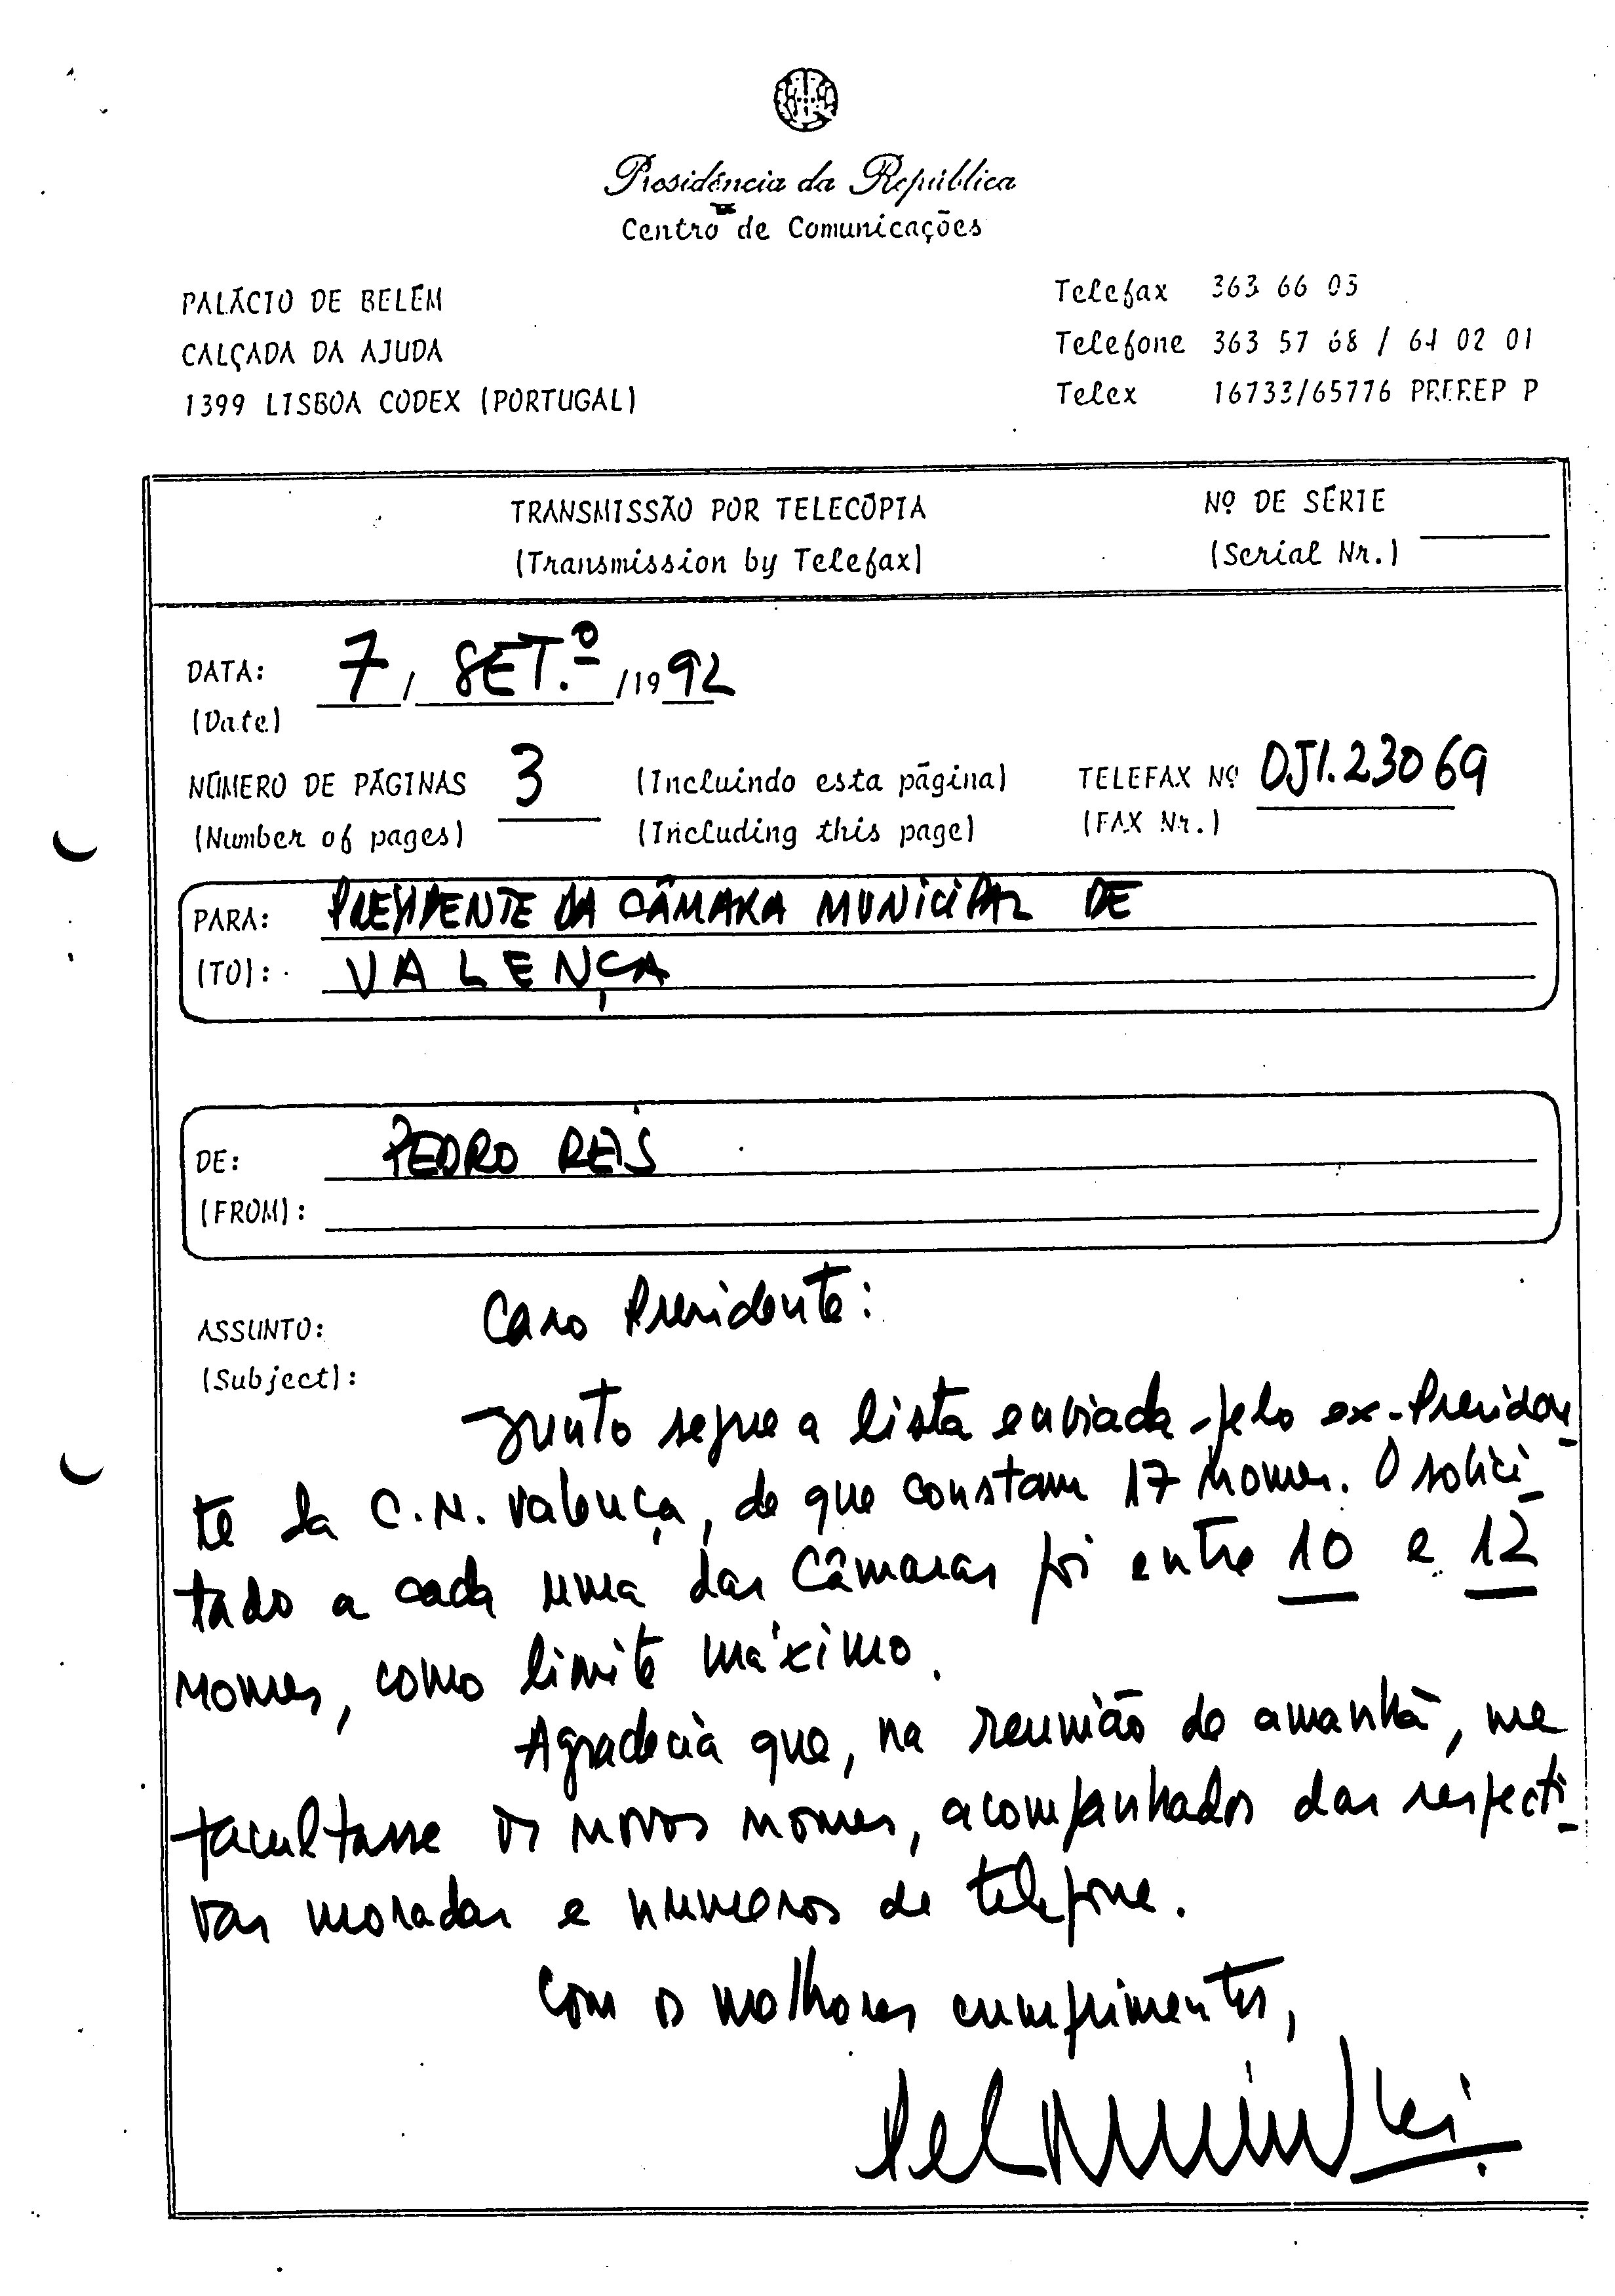 Presidência da República
Centro de Comunicações
PALÁCIO DE BELÉM
CALÇADA DA AJUDA
1399 LISBOA CODEX (PORTUGAL)
Telefax 363 66 03
Telefone 363 57 68 / 64 02 01
Telex 16733/65776 P
TRANSMISSÃO POR TELECÓPIA
(Transmission by Telefax)
Nº DE SÉRIE
(Serial Nr.)
DATA: 7 / SET.º /1992
(Date)
NÚMERO DE PÁGINAS 3 (Incluindo esta página) TELEFAX Nº 051.23069
(Number of pages) (Including this page) (FAX Nr.)
PARA: PRESIDENTE DA CÂMARA MUNICIPAL DE
(TO): VALENÇA
DE: PEDRO REIS
(FROM):
ASSUNTO: Caro Presidente:
(Subject):
Junto segue a lista enviada pelo ex-Presiden-
te da C.M. Valença, de que constam 17 nomes. O solici-
tado a cada uma das Câmaras foi entre 10 e 12
nomes, como limite máximo.
Agradecia que, na reunião de amanhã, me
facultasse os novos nomes, acompanhados das respecti-
vas moradas e numeros de telefone.
Com os melhores cumprimentos,